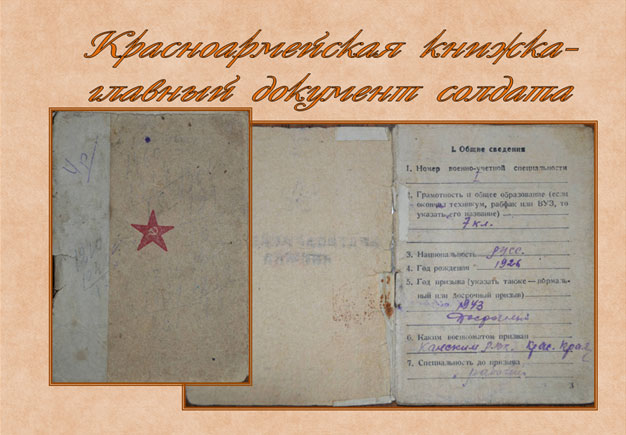 Красноармейская книжка-
главный документ солдата
I. Общие сведения
1. Номер военно-учетной специальности
2. Грамотность и общее образование (если
окончил техникум, рабфак или ВУЗ, то
указать его название)
7 кл.
3. Национальность русс.
4. Год рождения 1926
5. Год призыва (указать также — нормаль-
ный или досрочный призыв)
1943
Досрочный
6. Каким военкоматом призван
Канским РВК. Крас. Края
7. Специальность до призыва
рабочий
3